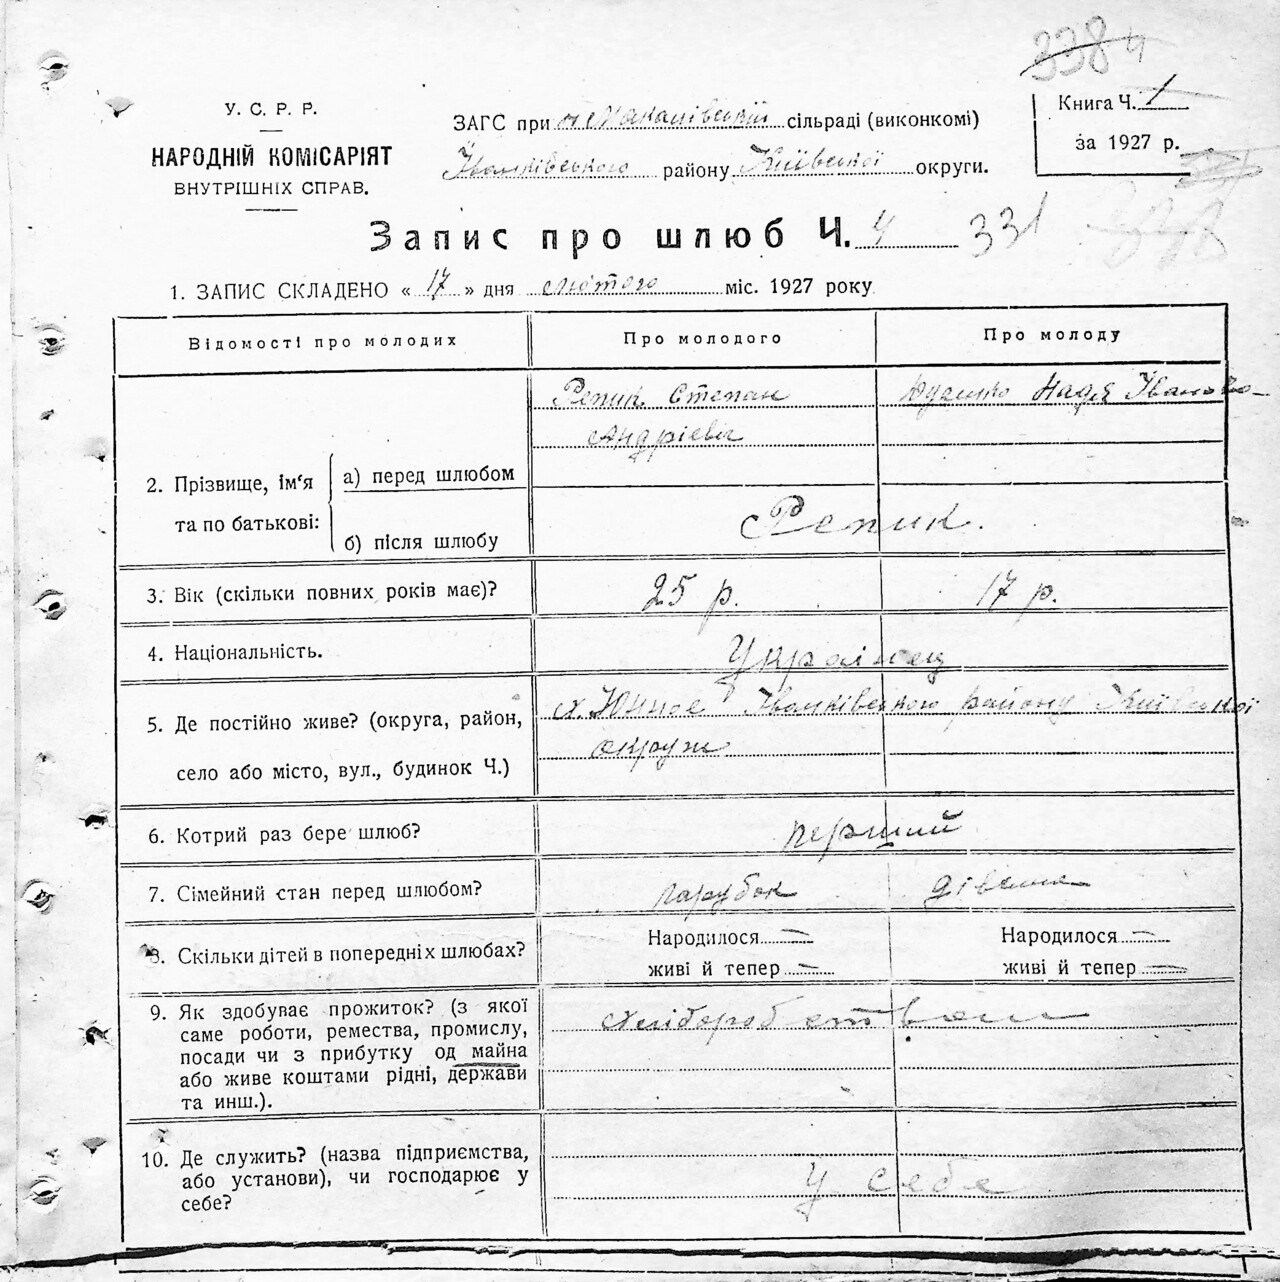 338 ч
У. С. Р. Р.
НАРОДНІЙ КОМІСАРІЯТ
ВНУТРІШНІХ СПРАВ.
ЗАГС при сільраді (виконкомі)
Іванківського району Київської округи.
Книга Ч. 1
за 1927 р.
Запис про шлюб Ч. 4 331
1. ЗАПИС СКЛАДЕНО « 17 » дня лютого міс. 1927 року
Відомості про молодих Про молодого Про молоду
Репик Степан Надія
Андрієвич
2. Прізвище, ім'я та по батькові: а) перед шлюбом
б) після шлюбу Репик.
3. Вік (скільки повних років має)? 25 р. 17 р.
4. Національність. Українец
5. Де постійно живе? (округа, район, Іванківського району Київської
село або місто, вул., будинок Ч.) округи
6. Котрий раз бере шлюб? перший
7. Сімейний стан перед шлюбом? парубок дівчина
8. Скільки дітей в попередніх шлюбах? Народилося — Народилося —
живі й тепер — живі й тепер —
9. Як здобуває прожиток? (з якої Хліборобством
саме роботи, ремества, промислу,
посади чи з прибутку од майна
або живе коштами рідні, держави
та инш.).
10. Де служить? (назва підприємства,
або установи), чи господарює у У себе
себе?